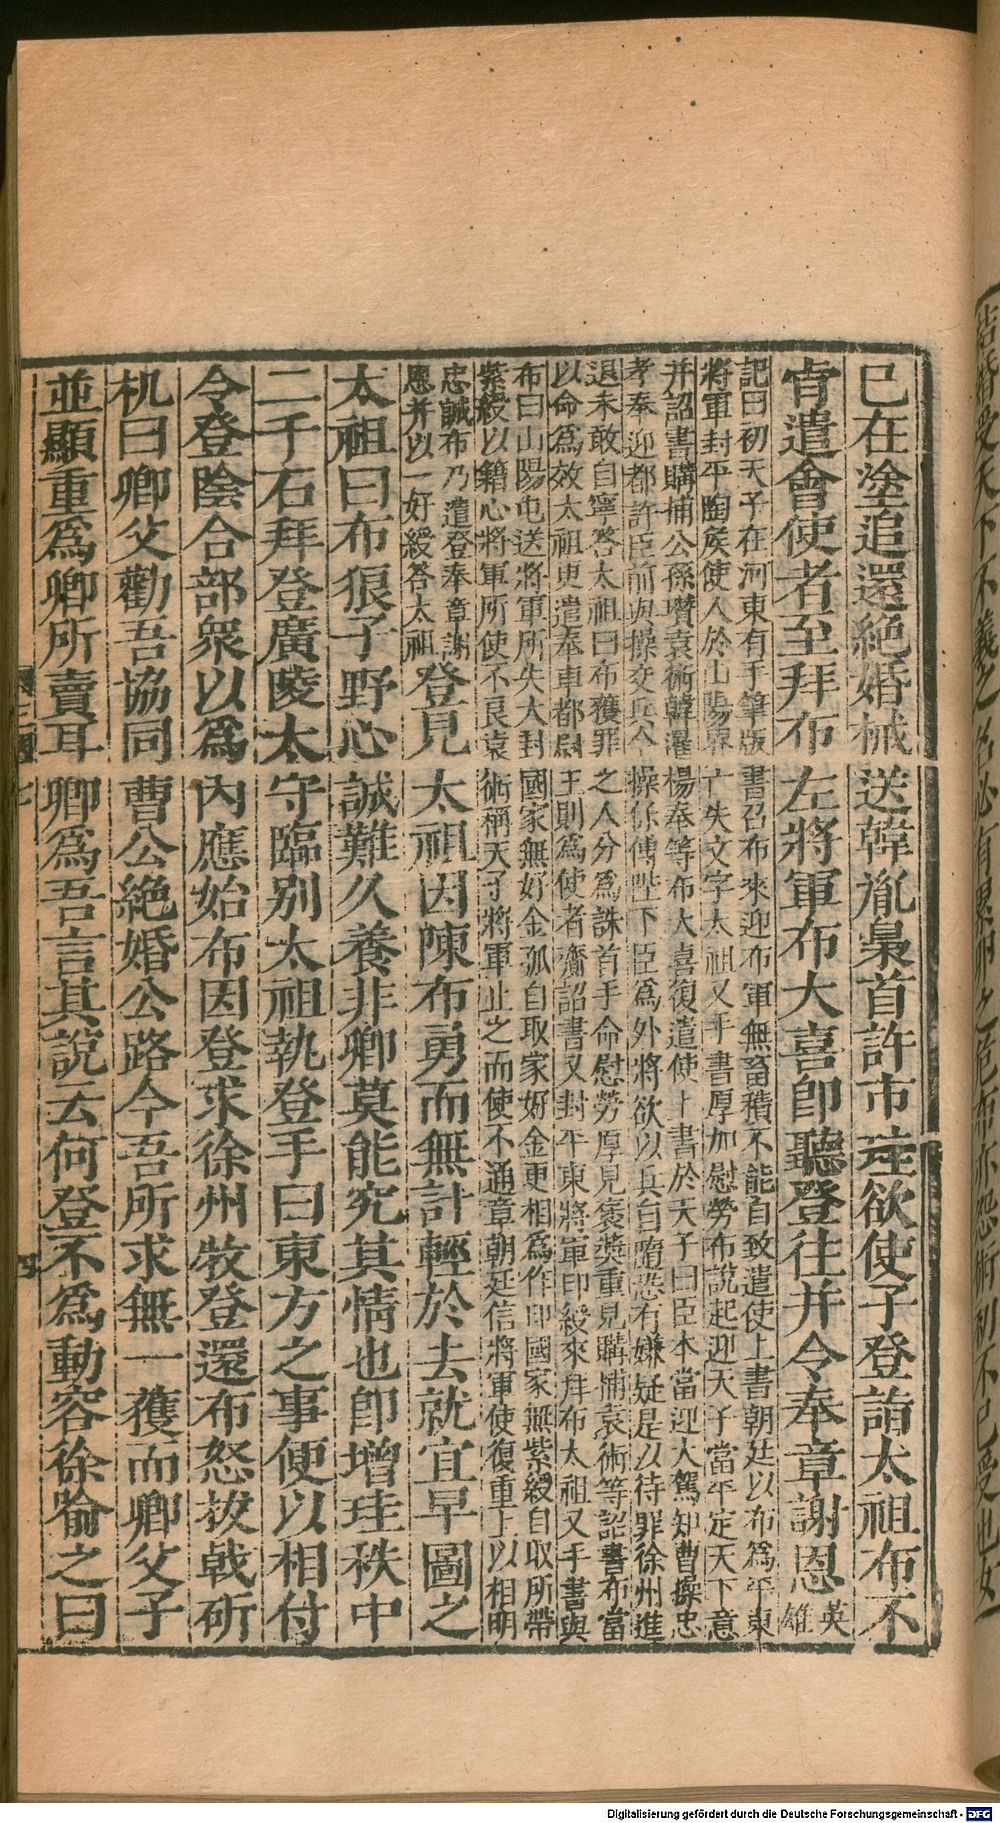 結婚受天下不義之名必有累卵之危布亦怨術初不己受也女
已在塗追還絕婚械送韓胤梟首許市珪欲使子登詣太祖布不
肯遣會使者至拜布左將軍布大喜即聽登往并令奉章謝恩英
雄
記曰初天子在河東有手筆版書召布來迎布軍無畜積不能自致遣使上書朝廷以布為平東
將軍封平陶侯使人於山陽界亡失文字太祖又手書厚加慰勞布說起迎天子當平定天下意
并詔書購捕公孫瓚袁術韓暹楊奉等布大喜復遣使上書於天子曰臣本當迎大駕知曹操忠
孝奉迎都許臣前與操交兵今操保傅陛下臣爲外將欲以兵自隨恐有嫌疑是以待罪徐州進
退未敢自寧答太祖曰布獲罪之人分爲誅首手命慰勞厚見褒奬重見購捕袁術等詔書布當
以命爲效太祖更遣奉車都尉王則爲使者齎詔書又封平東將軍印綬來拜布太祖又手書與
布曰山陽屯送將軍所失大封國家無好金孤自取家好金更相爲作印國家無紫綬自取所帶
紫綬以籍心將軍所使不良袁術稱天子將軍止之而使不通章朝廷信將軍使復重上以相明
忠誠布乃遣登奉章謝
恩并以一好綬答太祖
登見太祖因陳布勇而無計輕於去就宜早圖之
太祖曰布狼子野心誠難久養非卿莫能究其情也即增珪秩中
二千石拜登廣陵太守臨別太祖執登手曰東方之事便以相付
令登陰合部衆以爲內應始布因登求徐州牧登還布怒拔戟斫
机曰卿父勸吾協同曹公絕婚公路今吾所求無一獲而卿父子
並顯重爲卿所賣耳卿爲吾言其說云何登不爲動容徐喻之曰
Digitalisierung gefördert durch die Deutsche Forschungsgemeinschaft - DFG